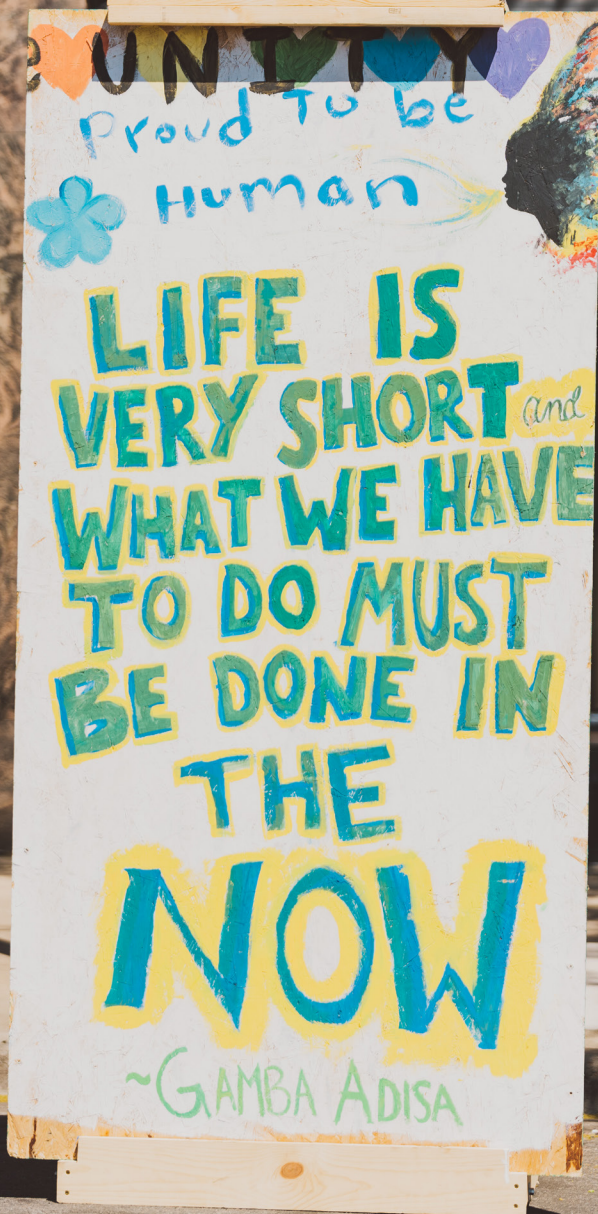 UNITY
Proud To be
Human
LIFE IS
VERY SHORT and
WHAT WE HAVE
TO DO MUST
BE DONE IN
THE
NOW
~GAMBA ADISA